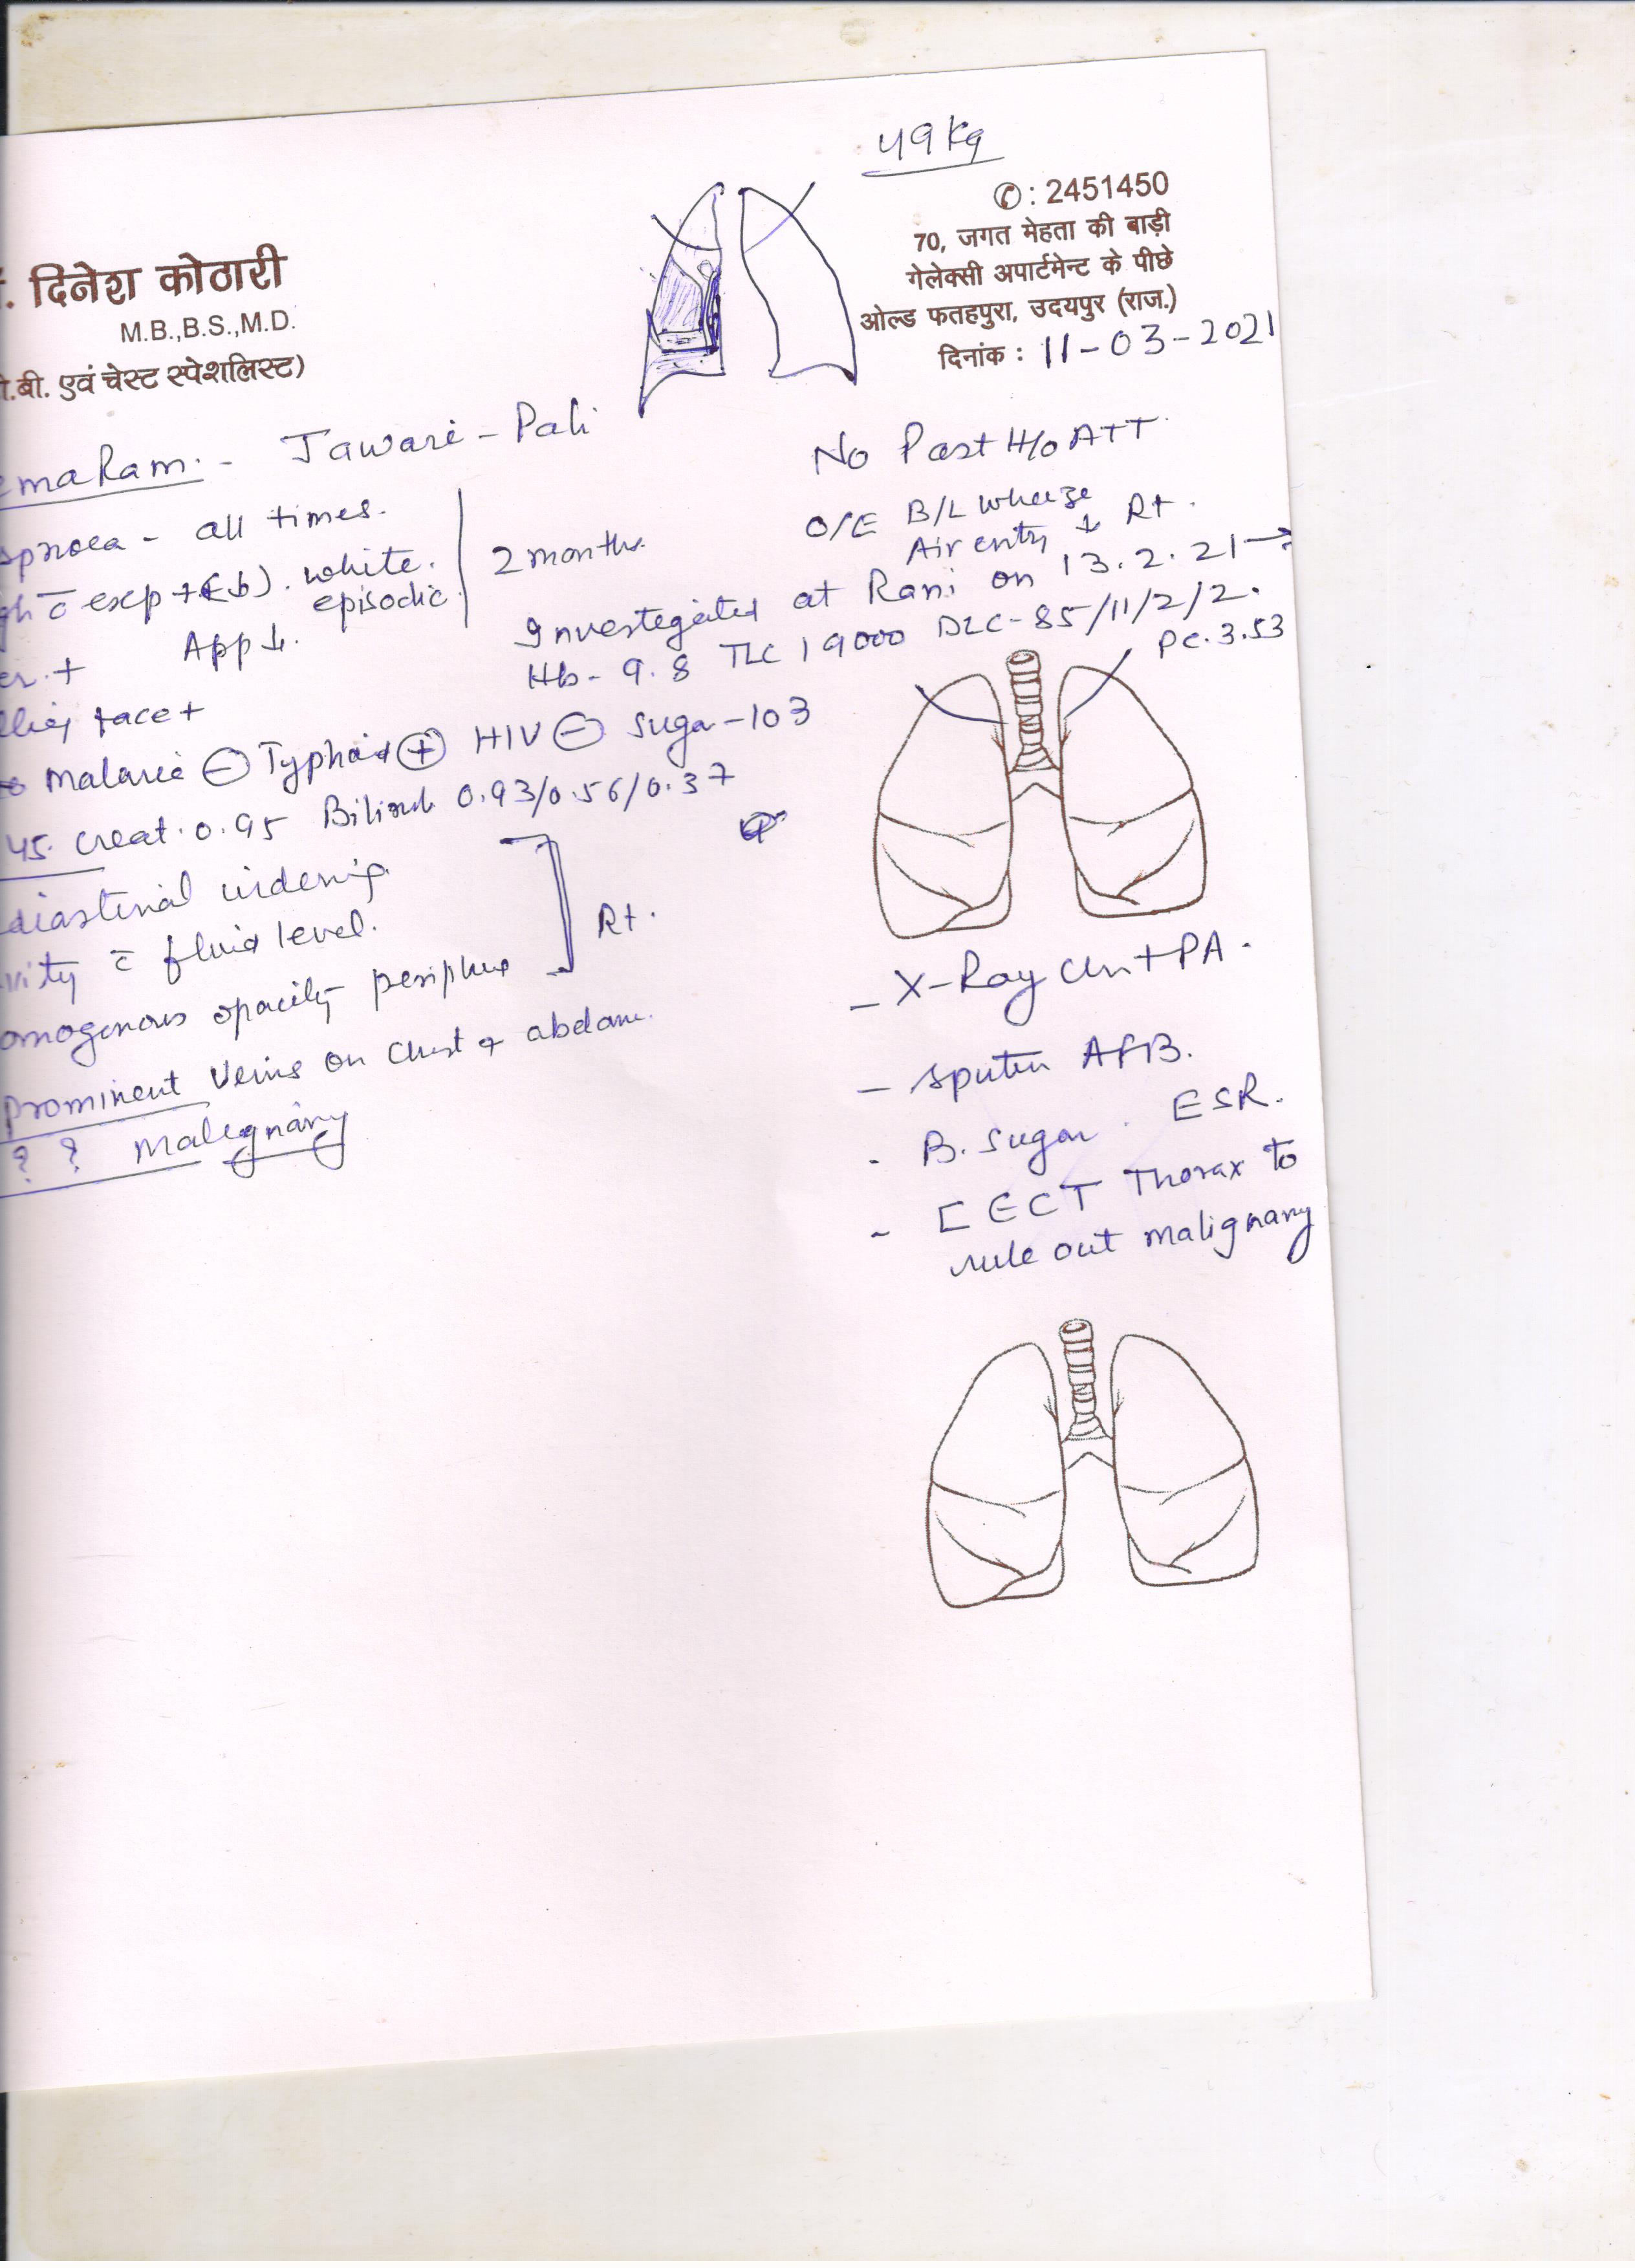 49 kg
✆: 2451450
70, जगत मेहता की बाड़ी
गेलेक्सी अपार्टमेन्ट के पीछे
ओल्ड फतहपुरा, उदयपुर (राज.)
दिनांक : 11-03-2021
. दिनेश कोठारी
M.B.,B.S.,M.D.
.बी. एवं चेस्ट स्पेशलिस्ट)
emaRam. - Jawari - Pali
spnoea - all times.
gh c̄ exp ++(b). white.
episodic
2 months.
er. + App ↓.
lling face +
No Past H/o ATT.
O/E B/L wheeze
Air entry ↓ Rt.
Investigated at Rani on 13.2.21 →
Hb - 9.8 TLC 19000 DLC - 85/11/2/2.
PC. 3.53
Malaria ⊖ Typhoid ⊕ HIV ⊖ Sugar - 103
45. Creat. 0.95 Bilirub 0.93/0.56/0.37
diastinal widening
vity c̄ fluid level.
omogenous opacity periphery
Rt.
prominent veins on chest & abdome.
? ? malignany
- X-Ray Chest PA.
- Sputum AFB.
- B. Sugar. ESR.
- CECT Thorax to
rule out malignany